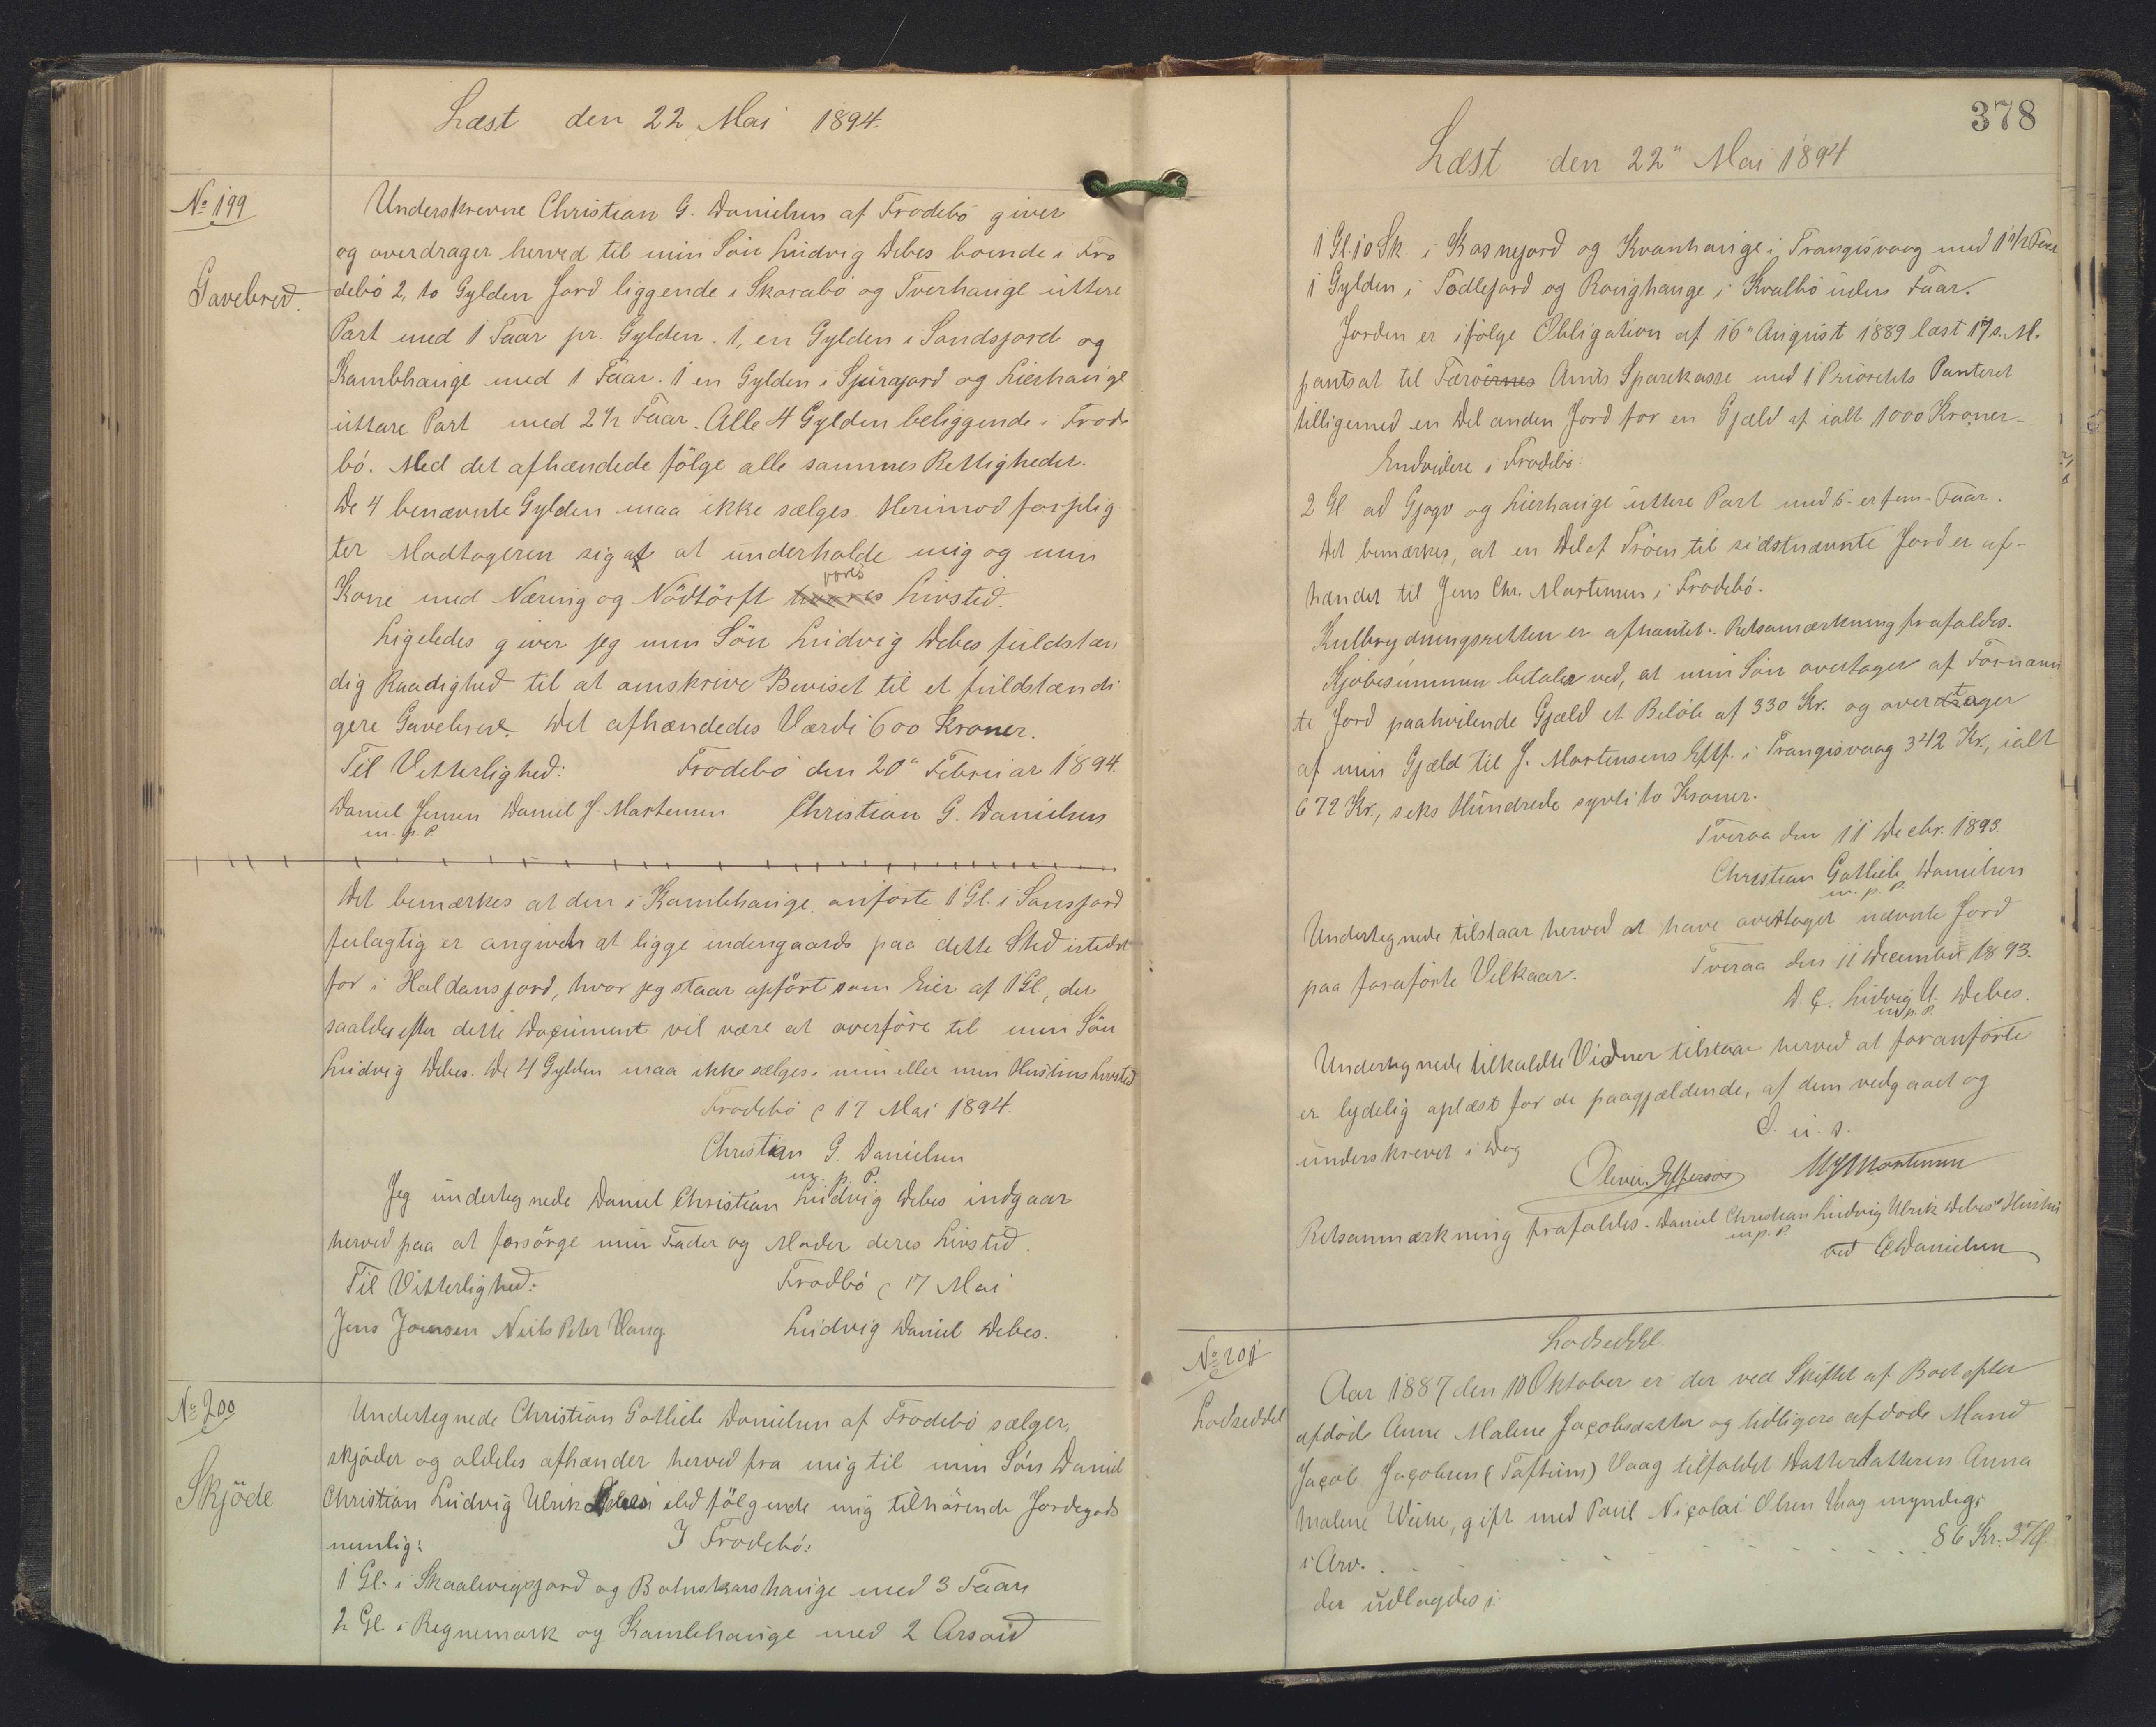 Læst den 22 Mai 1894.
No 199
Gavebrev.
Underskrevne Christian G. Danielsen af Frodebö giver
og overdrager herved til min Sön Ludvig Debes boende i Fro
debö 2, to Gylden Jord liggende i Skorabö og Tverhauge uttere
Part med 1 Faar pr. Gylden. 1, en Gylden i Sandsjord og
Kambhauge med 1 Faar. 1 en Gylden i Spurajord og Lierhauge
uttare Part med 2 1/2 Faar. Alle 4 Gylden beliggende i Frode
bö. Med det afhændede fölge alle sammes Rettigheder.
De 4 benævnte Gylden maa ikke sælges. Herimod forplig
ter Modtageren sig at underholde mig og min
Kone med Næring og Nödtörft vores Livstid.
Ligeledes giver jeg min Sön Ludvig Debes fuldstæn
dig Raadighed til at omskrive Beviset til et fuldstændi
gere Gavebrev. Det afhændedes Værdi 600 Kroner.
Til Vitterlighed: Frodebö den 20" Februar 1894.
Daniel Jensen Daniel J. Martensen Christian G. Danielsen
m. p. P.
Det bemærkes at den i Kambhauge anförte 1 Gl. i Sansjord
feilagtig er angiven at ligge indengaards paa dette Sted istedet
for i Haldansjord, hvor jeg staar opfört som Eier af 1 Gl., der
saaledes efter dette Document vil være at overföre til min Sön
Ludvig Debes. De 4 Gylden maa ikke sælges i min eller min Hustrus Livstid
Frodebö 17 Mai 1894.
Christian G. Danielsen
m. p. P.
Jeg undertegnede Daniel Christian Ludvig Debes indgaar
herved paa at forsörge min Fader og Moder deres Livstid.
Til Vitterlighed: Frodbö 17 Mai
Jens Joensen Niels Peter Vang Ludvig Daniel Debes.
No 200
Skjöde
Undertegnede Christian Gotlieb Danielsen af Frodebö sælger,
skjöder og aldeles afhænder herved fra mig til min Sön Daniel
Christian Ludvig Ulrik Debes fölgende mig tilhörende Jordegods
nemlig: I Frodebö:
1 Gl. i Skaalevigsjord og Botnskarshauge med 3 Faar
2 Gl. i Regnemark og Kambhauge med 2
378
Læst den 22" Mai 1894
1 Gl. 10 Sk. i Kasnejord og Kvanhauge i Trangisvaag med 1 1/2 Faar
1 Gylden i Todlejord og Roughauge i Kvalbö uden Faar.
Jorden er ifölge Obligation af 16" August 1889 læst 17 s. M.
pantsat til Færöernes Amts Sparekasse med 1 Prioritets Panteret
tilligemed en Del anden Jord for en Gjæld af ialt 1000 Kroner-
Endvidere i Frodebö:
2 Gl. ad Gjogv og Lierhauge uttere Part med 5- er fem- Faar.
Det bemærkes, at en Del af Tröen til sidstnævnte Jord er af-
hændet til Jens Chr. Martensen i Frodebö.
Kulbrydningsretten er afhændet. Retsanmærkning frafaldes.
Kjöbesummen betales ved, at min Sön overtager af Fornævn
te Jord paahvilende Gjæld et Belöb af 330 Kr. og overtager
af min Gjæld til J. Mortensens Eftf. i Trangisvaag 342 Kr., ialt
672 Kr., seks Hundrede syvti to Kroner.
Tveraa den 11 Decbr. 1893.
Christian Gotlieb Danielsen
m. p. P.
Undertegnede tilstaar herved at have overtaget nævnte Jord
paa foranförte Vilkaar. Tveraa den 11 December 1893.
D. C. Ludvig U. Debes.
m. p. P.
Undertegnede tilkaldte Vidner tilstaar herved at foranförte
er lydelig oplæst for de paagjældende, af dem vedgaaet og
underskrevet i Dag D. u. s.
Oliver Effersøe MJMortensen
Retsanmærkning frafaldes. Daniel Christian Ludvig Ulrik Debes' Hustru
m. p. P.
ved CGDanielsen
No 201
Lodseddel
Lodseddel
Aar 1887 den 10 Oktober er der ved Skiftet af Boet efter
afdöde Anne Malene Jacobsdatter og tidligere afdöde Mand
Jacob Jacobsen (Taftum) Vaag tilfaldet Datterdatteren Anna
Malene Weihe, gift med Poul Nicolai Olsen Vaag myndig:
i Arv. . . . . . . 86 Kr. 37 Ø.
der udlagdes i: